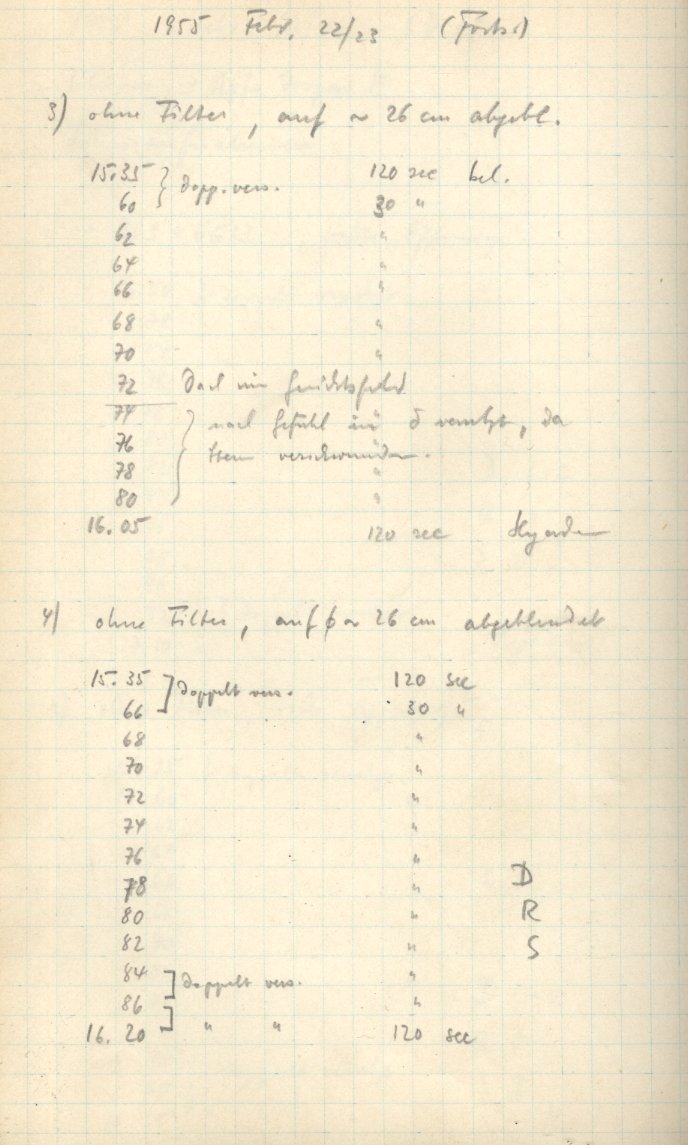 1955 Febr. 22/23
3) ohne Filter, auf ~ 26 cm abgebl.
15.35 } dopp. vers. 120 sec bel.
60 30 "
62 "
64 "
66 "
68 "
70 "
72 Dach im Gesichtsfeld
74 } nach Gefühl in δ versetzt, da
76 Stern verschwunden.
78 "
80 "
16.05 120 sec Hyaden
4) ohne Filter, auf ϕ ~ 26 cm abgeblendet
15.35 ] doppelt vers. 120 sec
66 30 "
68 "
70 "
72 "
74 "
76 "
78 " D
80 " R
82 " S
84 ] doppelt vers. "
86 "
16.20 ] " " 120 sec